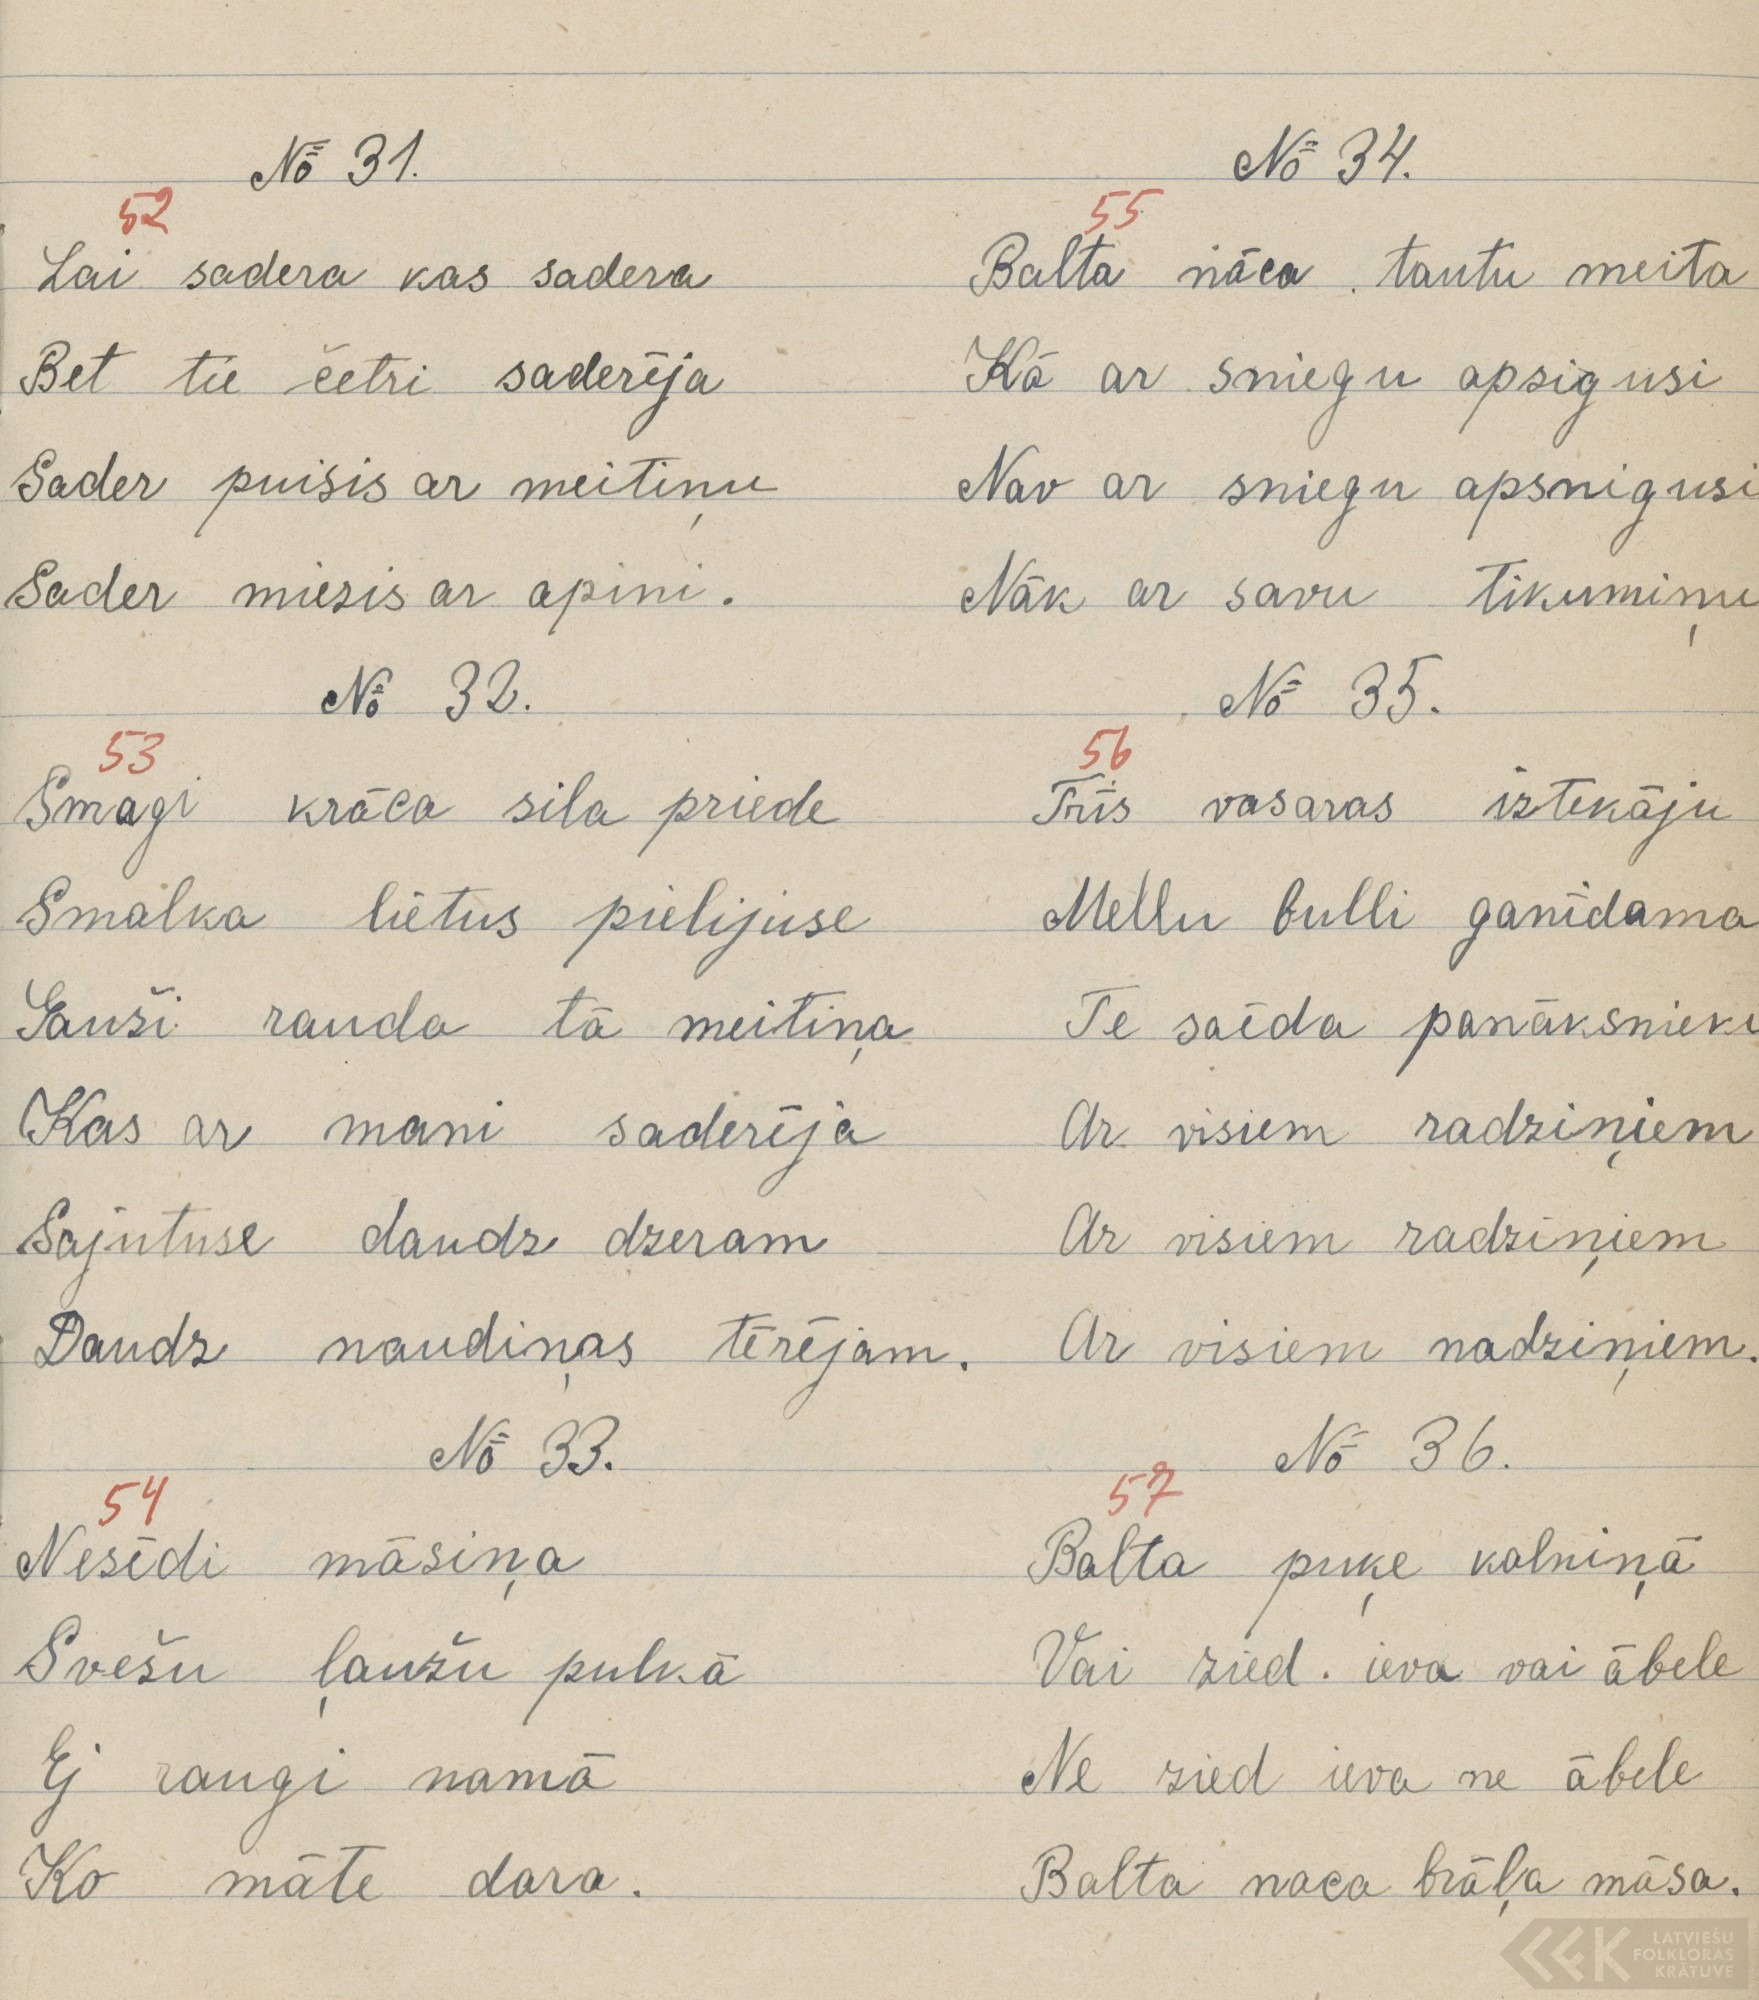 № 31.
52
Lai sadera kas sadera
Bet tie četri saderēja
Sader puisis ar meitiņu
Sader miezis ar apini.
№ 32.
53
Smagi krāca sila priede
Smalka lietus pielijuse
Gauži rauda tā meitiņa
Kas ar mani saderēja
Sajutuse daudz dzeram
Daudz naudiņas tērējam.
№ 33.
54
Nesēdi māsiņa
Svešu ļaužu pulkā
Ej raugi namā
Ko māte dara.
№ 34.
55
Balta nāca tautu meita
Kā ar sniegu apsigusi
Nav ar sniegu apsnigusi
Nāk ar savu tikumiņu
№ 35.
56
Trīs vasaras iztekāju
Mellu bulli ganīdama
Te saēda panāksnieki
Ar visiem radziņiem
Ar visiem radziņiem
Ar visiem nadziņiem.
№ 36.
57
Balta puķe kalniņā
Vai zied ieva vai ābele
Ne zied ieva ne ābele
Balta naca brāļa māsa.
LATVIEŠU
FOLKLORAS
KRĀTUVE